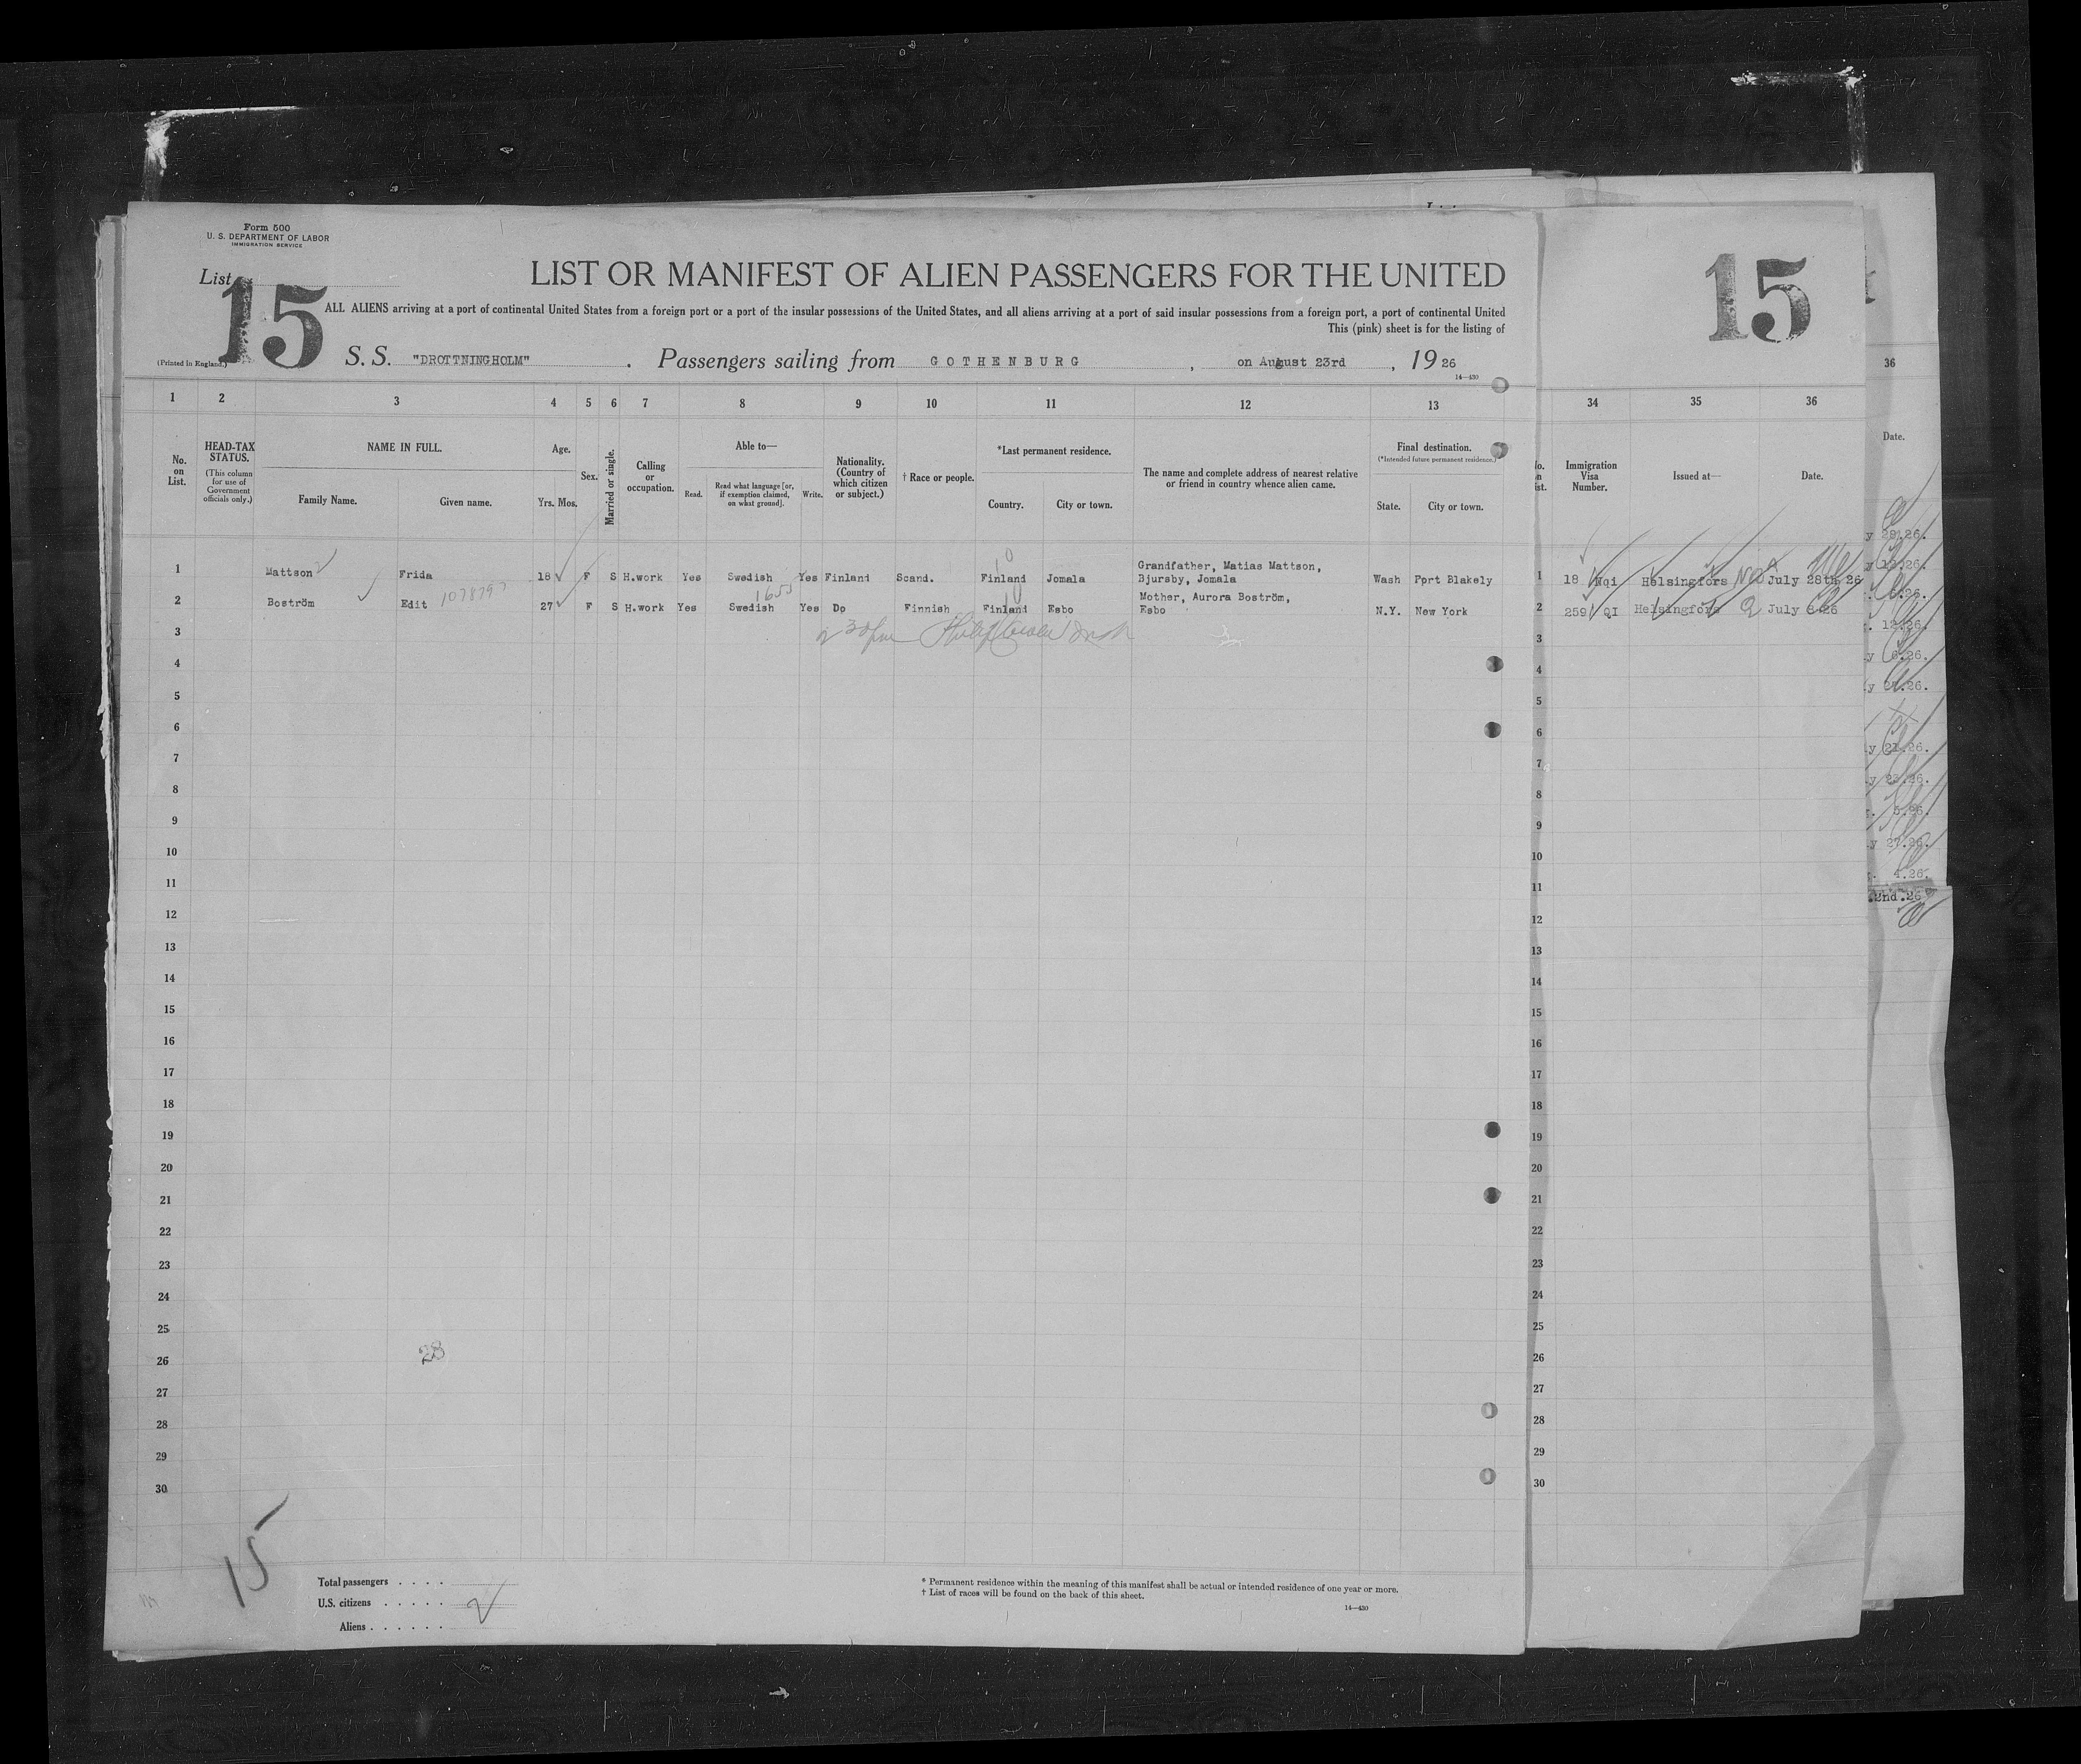 Form 500
U. S. DEPARTMENT OF LABOR
IMMIGRATION SERVICE
List 15
LIST OR MANIFEST OF ALIEN PASSENGERS FOR THE UNITED
ALL ALIENS arriving at a port of continental United States from a foreign port or a port of the insular possessions of the United States, and all aliens arriving at a port of said insular possessions from a foreign port, a port of continental United
This (pink) sheet is for the listing of
(Printed in England.)
S. S. "DROTTNINGHOLM" . Passengers sailing from GOTHENBURG , on August 23rd , 19 26
14—430
15
36
1 2 3 4 5 6 7 8 9 10 11 12 13 34 35 36
No. on List.
HEAD-TAX STATUS.
(This column for use of Government officials only.)
NAME IN FULL.
Family Name. Given name.
Age.
Yrs. Mos.
Sex.
Married or single.
Calling or occupation.
Able to—
Read. Read what language [or, if exemption claimed, on what ground]. Write.
Nationality. (Country of which citizen or subject.)
† Race or people.
*Last permanent residence.
Country. City or town.
The name and complete address of nearest relative or friend in country whence alien came.
Final destination.
(*Intended future permanent residence.)
State. City or town.
Immigration Visa Number.
Issued at—
Date.
Date.
1 Mattson Frida 18 F S H.work Yes Swedish Yes Finland Scand. Finland Jomala Grandfather, Matias Mattson, Bjursby, Jomala Wash Pprt Blakely 1 18 Nqi Helsingfors July 28th 26
2 Boström Edit 27 F S H.work Yes Swedish Yes Do Finnish Finland Esbo Mother, Aurora Boström, Esbo N.Y. New York 2 259 QI Helsingfors July 8 26
3 3
4 4
5 5
6 6
7 7
8 8
9 9
10 10
11 11
12 12
13 13
14 14
15 15
16 16
17 17
18 18
19 19
20 20
21 21
22 22
23 23
24 24
25 25
26 28 26
27 27
28 28
29 29
30 30
15
Total passengers . . . .
U.S. citizens . . . . .
Aliens . . . . . .
* Permanent residence within the meaning of this manifest shall be actual or intended residence of one year or more.
† List of races will be found on the back of this sheet.
14—430